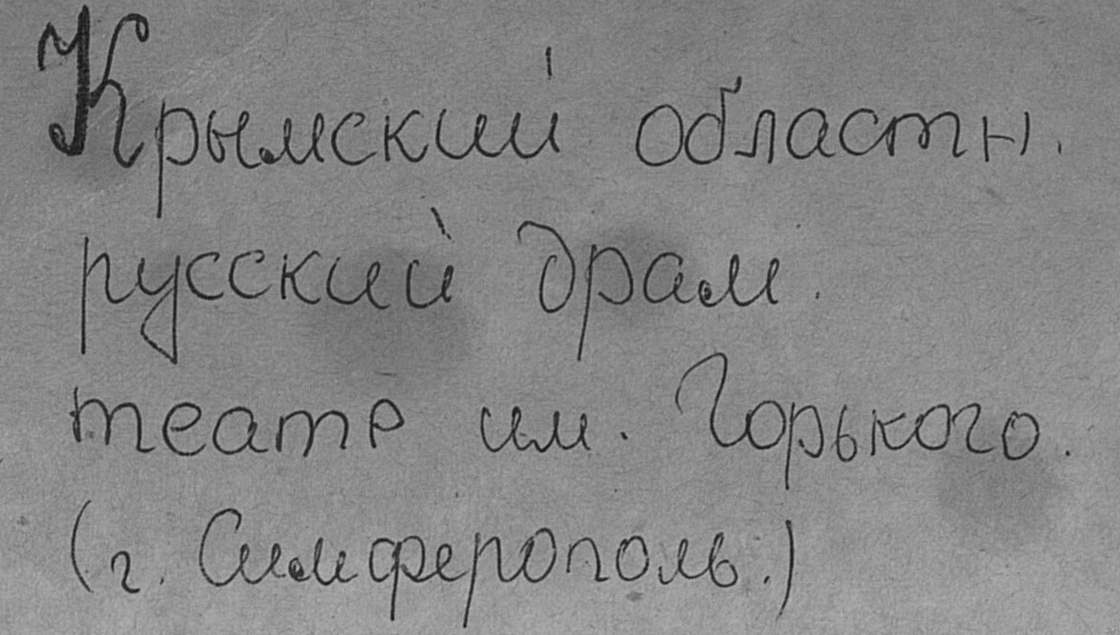 Крымский областн.
русский драм.
театр им. Горького.
(г. Симферополь.)